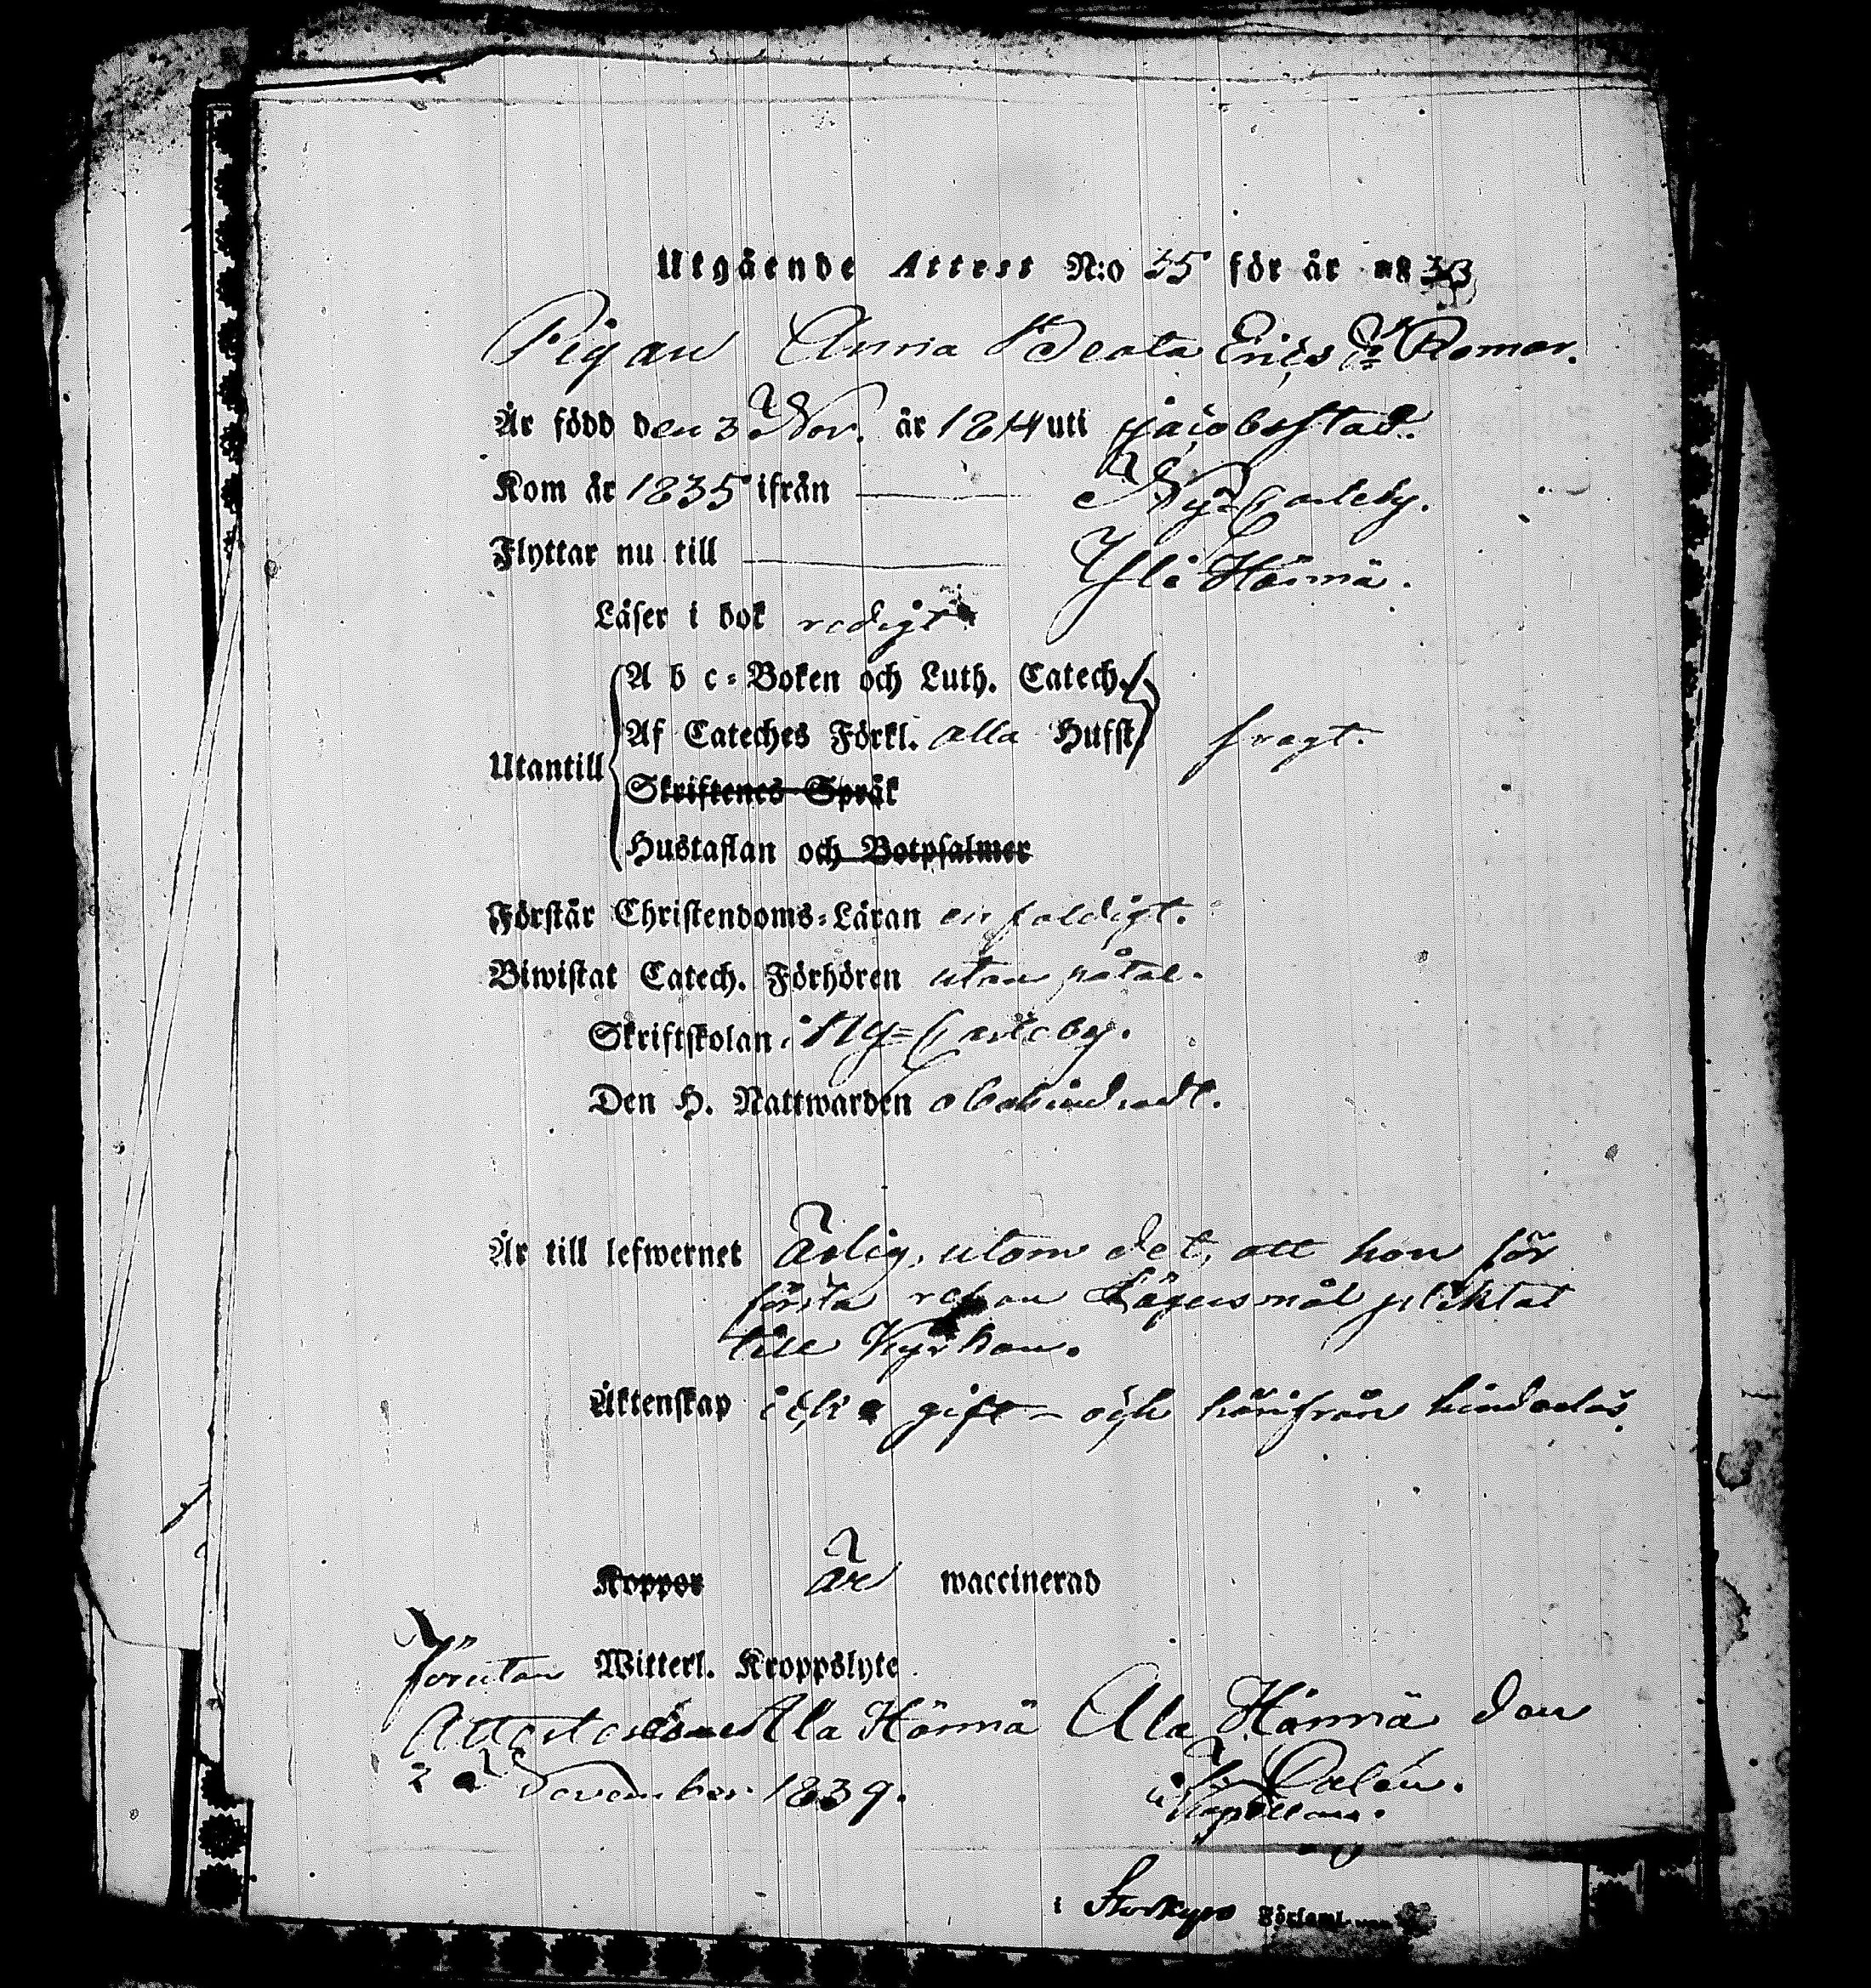 Utgående Attest N:o 55 för år
Pigan Anna Beata Erics Dr Romar.
Är född den 3 Nov. år 1814 uti Jacobsstad.
Kom år 1835 ifrån Ny=Carleby.
Flyttar nu till Ylihärmä.
Läser i bok redigt
A b c=Boken och Luth. Catech.
Af Cateches Förkl. alla Hufst.
svagt.
Utantill
Skriftenes Språk
Hustaflan och Botpsalmer
Förstår Christendoms=Läran enfaldigt.
Biwistat Catech. Förhören utan påtal.
Skriftskolan i Ny=Carleby.
Den H. Nattwarden obehindradt.
Är till lefwernet Ärlig, utom det, att hon för
första resan Lägersmål pliktat
till Kyrkan.
Äktenskap icke gift – och härifrån hinderlös.
Koppor är waccinerad
Förutan Witterl. Kroppslyte.
Attesteras Ala Härmä Ala Härmä den
2 November 1839. Dalén.
Kapellan.
i Storkyro Församl.